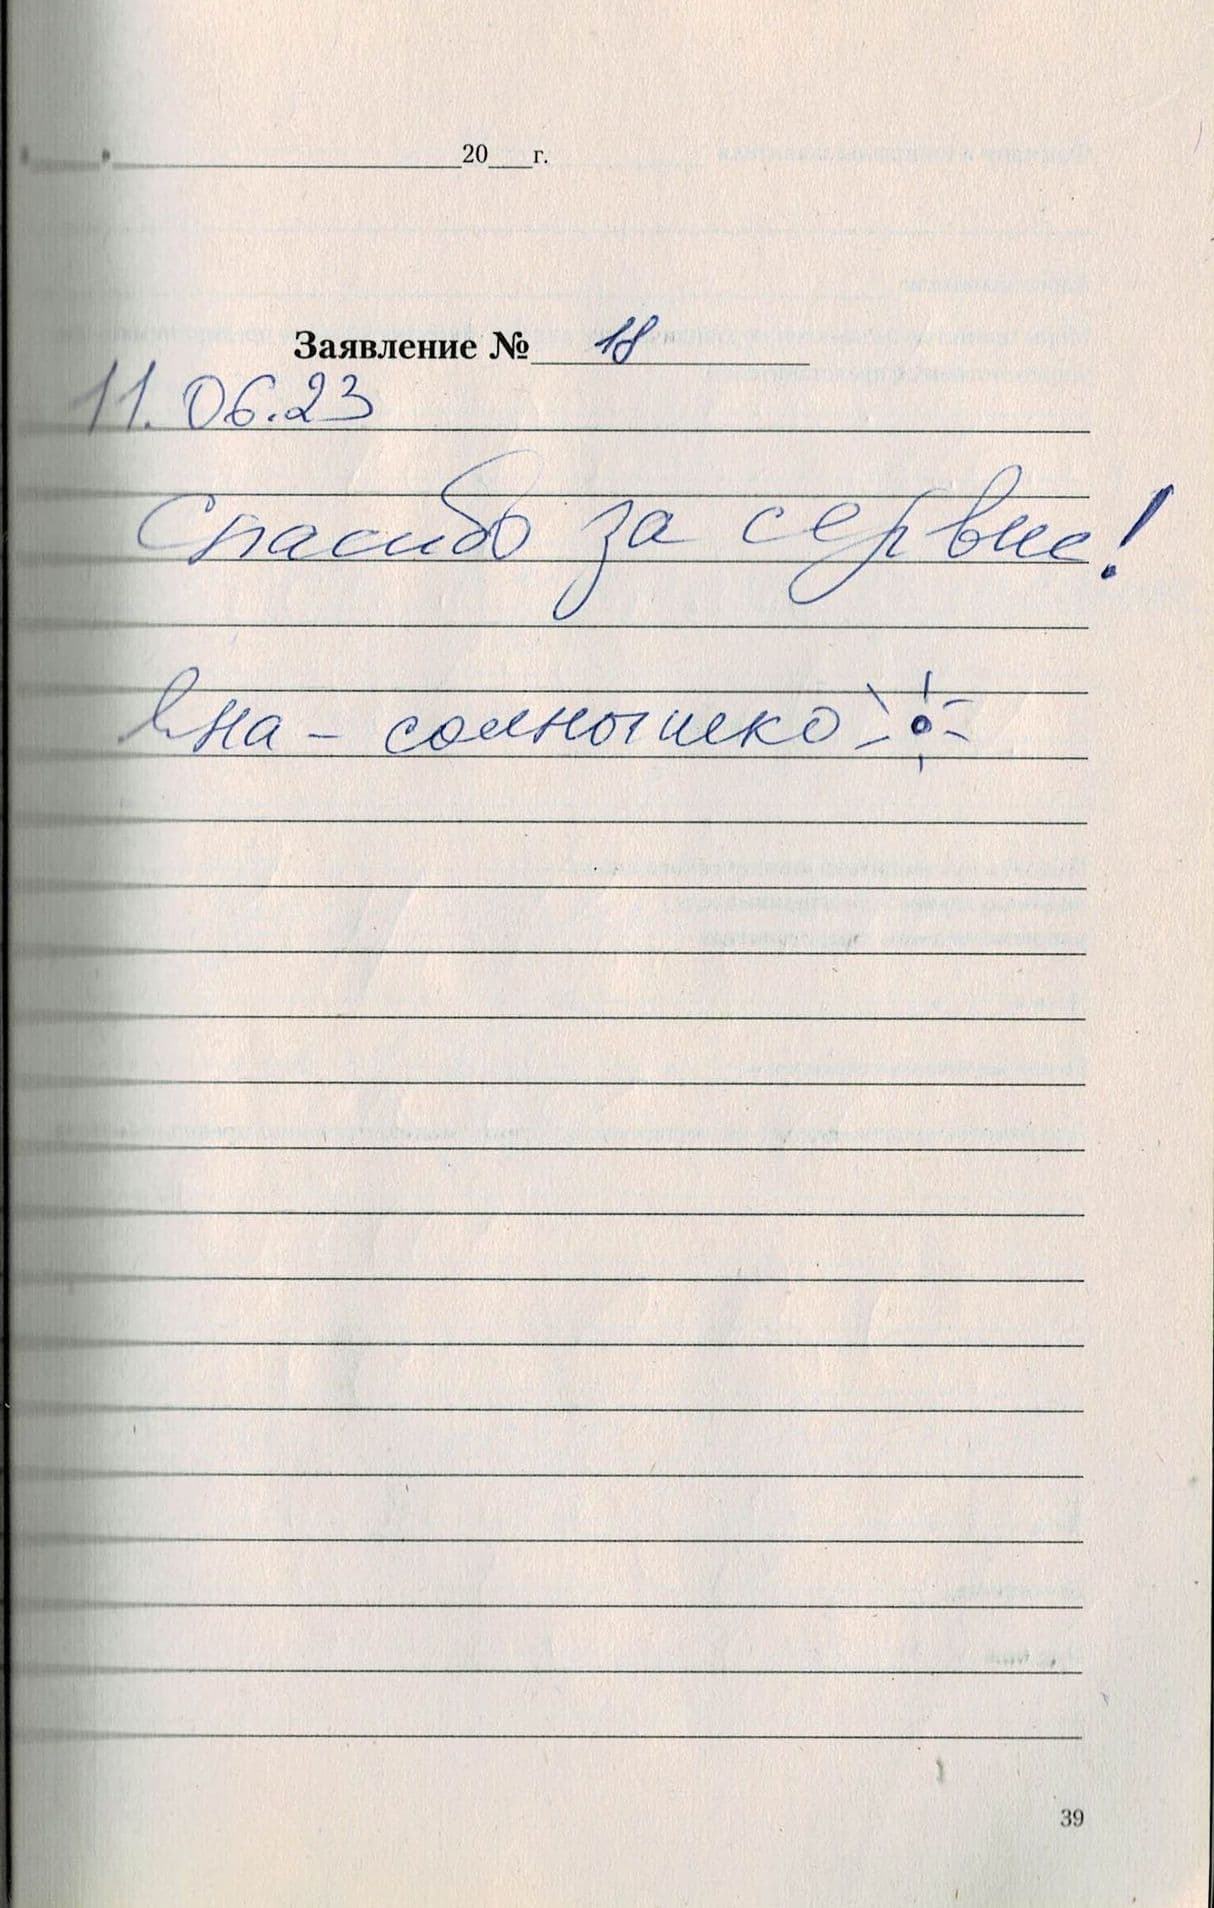 "___" ____________ 20___г.
Заявление № 18
11.06.23
Спасибо за сервис!
Яна - солнышко
39